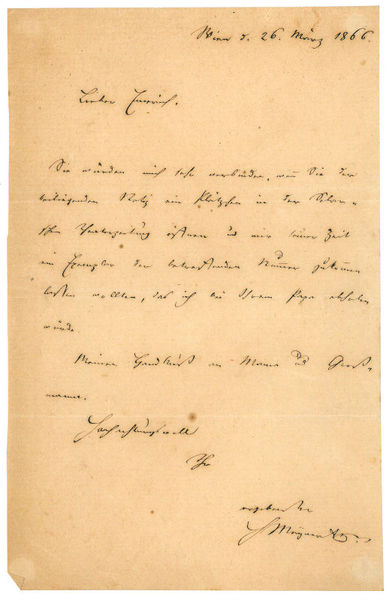 Wien d. 26. März 1866.
Lieber Emerich.
Sie würden mich sehr verbinden, wenn Sie der
beiliegenden Notiz ein Plätzchen in der
öffnen und mir seiner Zeit
ein Exemplar der betreffenden Nummer zukommen
lassen wollten, das ich bei Ihrem Papa abholen
würde.
Meinen Handkuß an Mama und Groß-
mama.
Hochachtungsvoll
Ihr
ergebenster